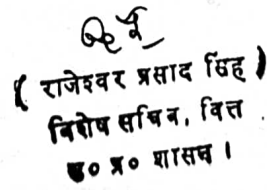 ( राजेश्वर प्रसाद सिंह )
विशेष सचिव, वित्त
उ० प्र० शासन ।